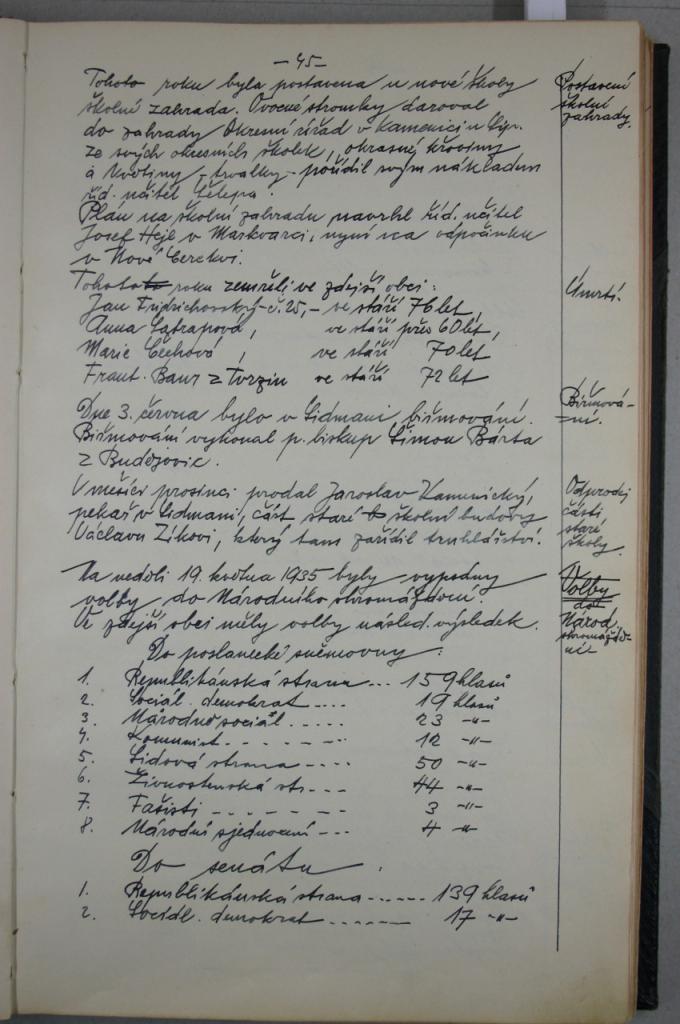 —45—
Tohoto roku byla postavena u nové školy
školní zahrada. Ovocné stromky daroval
do zahrady Okresní úřad v Kamenici n Lip.
ze svých okresních školek, okrasné křoviny
a květiny - trvalky - pořídil svým nákladem
říd. učitel Čelepa.
Plán na školní zahradu navrhl říd. učitel
Josef Hejl v Markvarci, nyní na odpočinku
v Nové Cerekvi.
Postavení
školní
zahrady.
Tohoto roku zemřeli ve zdejší obci:
Jan Fridrichovský - č. 25, - ve stáří 76 let,
Anna Satrapová, ve stáří přes 60 let,
Marie Čechová, ve stáří 70 let
Frant. Baur z ve stáří 72 let
Úmrtí.
Dne 3. června bylo v Lidmani biřmování.
Biřmování vykonal p. biskup Šimon Bárta
z Budějovic.
Biřmová-
ní.
V měsíci prosinci prodal Jaroslav Kamenický,
pekař v Lidmani, část staré školní budovy
Václavu Zíkovi, který tam zařídil truhlářství.
Odprodej
části
staré
školy.
Na neděli 19. května 1935 byly vypsány
volby do Národního shromáždění.
Ve zdejší obci měly volby násled. výsledek.
Volby
do
Národ.
shromáždě-
ní
Do poslanecké sněmovny:
1. Republikánská strana ... 159 hlasů
2. Sociál. demokrat .... 19 hlasů
3. Národně sociál ..... 23 -"-
4. Komunist. - - - - - - 12 -"-
5. Lidová strana - - - - 50 -"-
6. Živnostenská str. - - - 44 -"-
7. Fašisti - - - - - - - 3 -"-
8. Národní sjednocení - - - 4 -"-
Do senátu.
1. Republikánská strana ------ 139 hlasů
2. Sociál. demokrat ........ 17 -"-